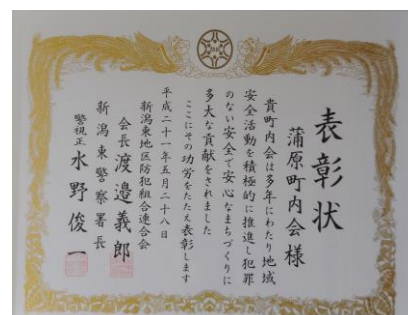 表彰状
蒲原町内会様
貴町内会は多年にわたり地域
安全活動を積極的に推進し犯罪
のない安全で安心なまちづくりに
多大な貢献をされました
ここにその功労をたたえ表彰します
平成二十一年五月二十八日
新潟東地区防犯組合連合会
会長 渡邉義郎
新潟東警察署長
警視正 水野俊一